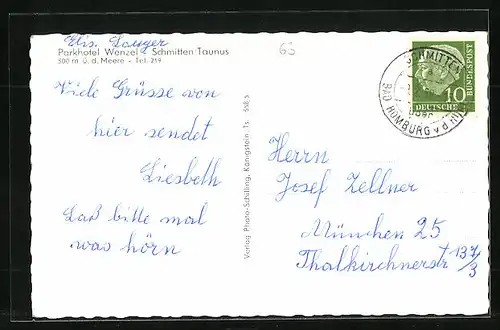 Elis. Langer
Parkhotel Wenzel Schmitten Taunus
300 m ü. d. Meere – Tel. 219
63
Viele Grüsse von
hier sendet
Liesbeth
Laß bitte mal
was hörn
Verlag Photo-Schilling, Königstein Ts.
SCHMITTEN
BAD HOMBURG v d
10
DEUTSCHE
BUNDESPOST
Herrn
Josef Zellner
München 25
Thalkirchnerstr